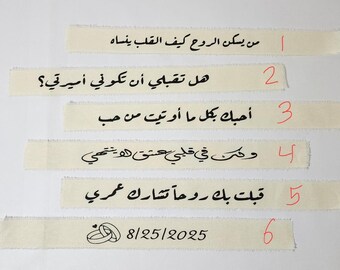 من يسكن الروح كيف القلب ينساه 1
هل تقبلي أن تكوني أميرتي؟ 2
أحبك بكل ما أوتيت من حب 3
في قلبي عشق لا ينتهي 4
قبلت بك روحاً تشارك عمري 5
8/25/2025 6